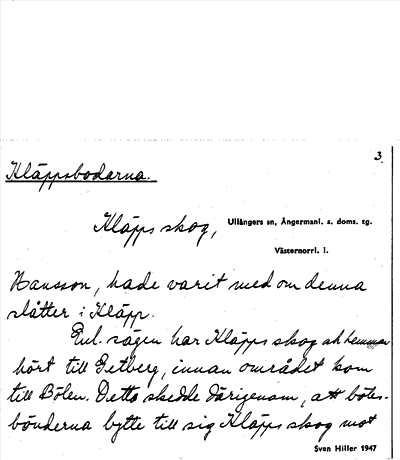 3.
Kläppsbodarna.
Kläpps skog, Ullångers sn, Ångermanl. s. doms. tg.
Västernorrl. l.
Hansson, hade varit med om denna
slåtter i Kläpp.
Enl. sägen har Kläpps skog och hemman
hört till Getberg, innan området kom
till Bölen. Detta skedde därigenom, att böles-
bönderna bytte till sig Kläpps skog mot
Sven Hiller 1947